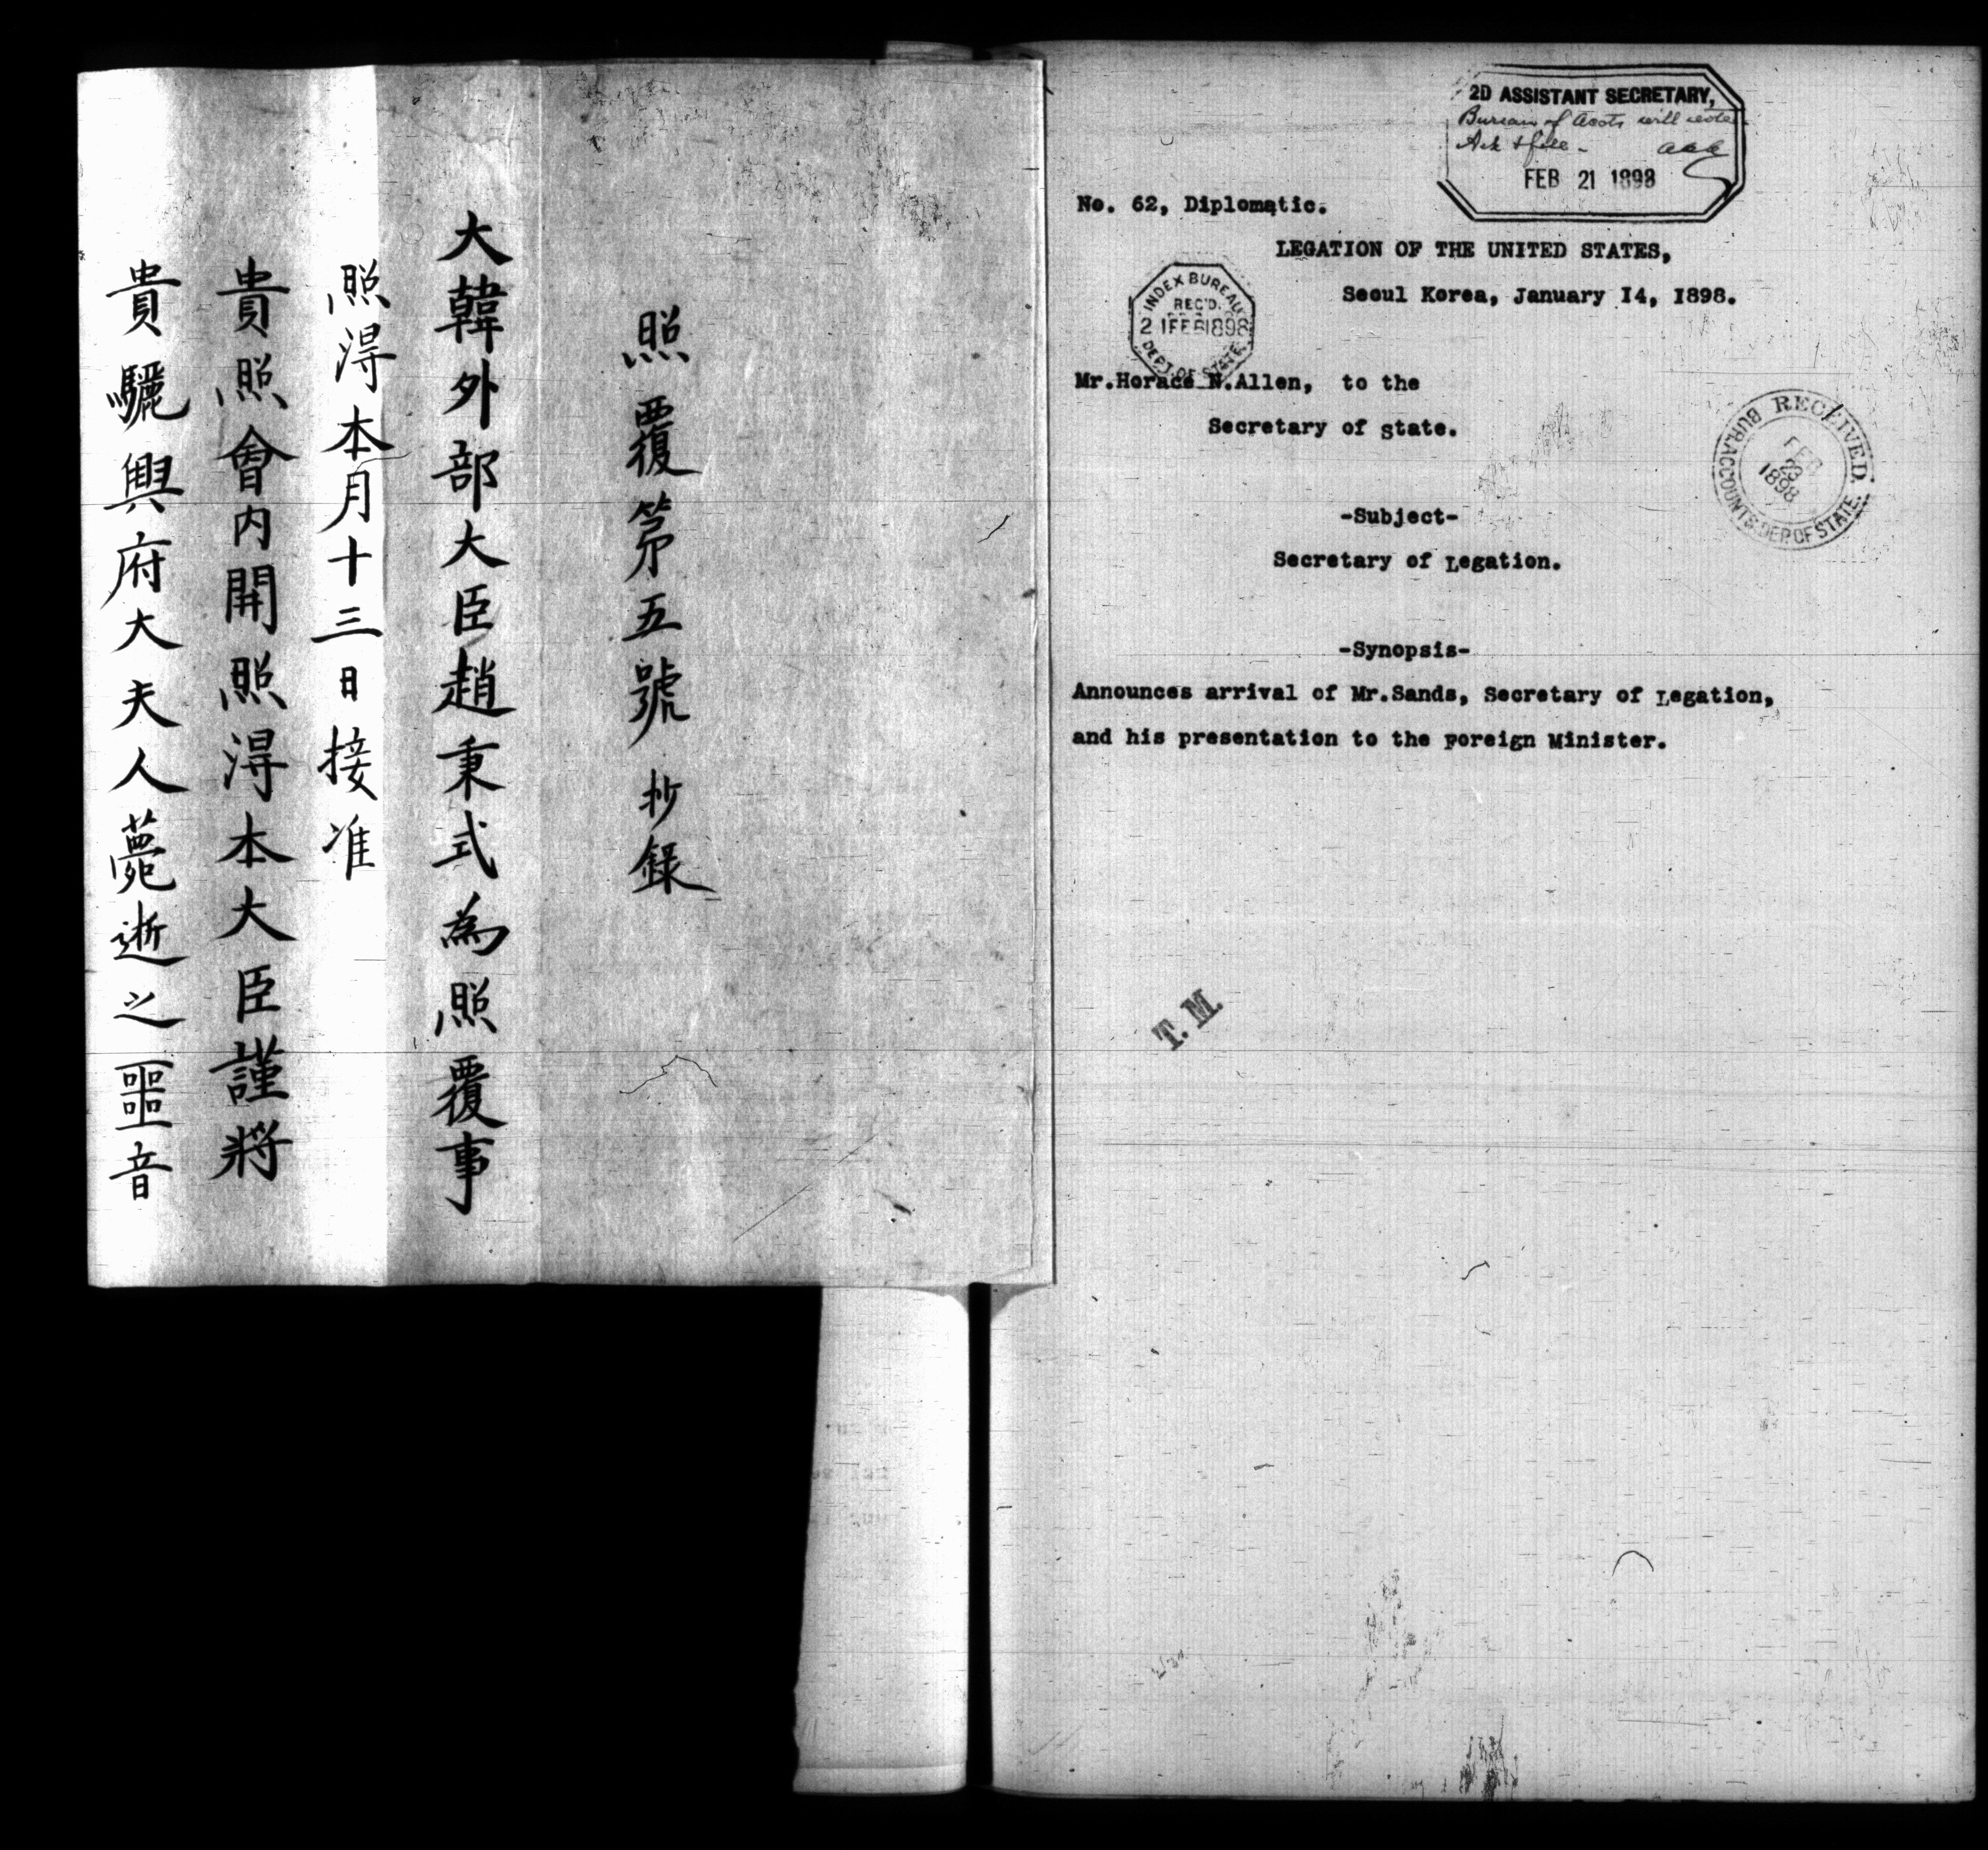 照覆第五號 抄錄
大韓外部大臣趙秉式為照覆事
照淂本月十三日接准
貴照會內開照淂本大臣謹將
貴驪興府大夫人薨逝之噩音
2D ASSISTANT SECRETARY,
Bureau of Accts will note
Ack & file - aaa
FEB 21 1898
No. 62, Diplomatic.
LEGATION OF THE UNITED STATES,
Seoul Korea, January 14, 1898.
INDEX BUREAU
REC'D.
21 FEB 1898
DEPT. OF STATE.
Mr.Horace N.Allen, to the
Secretary of state.
RECEIVED.
FEB
1898
BUR.ACCOUNTS.DEP.OF STATE.
-Subject-
Secretary of Legation.
-Synopsis-
Announces arrival of Mr.Sands, Secretary of Legation,
and his presentation to the Foreign Minister.
T. M.